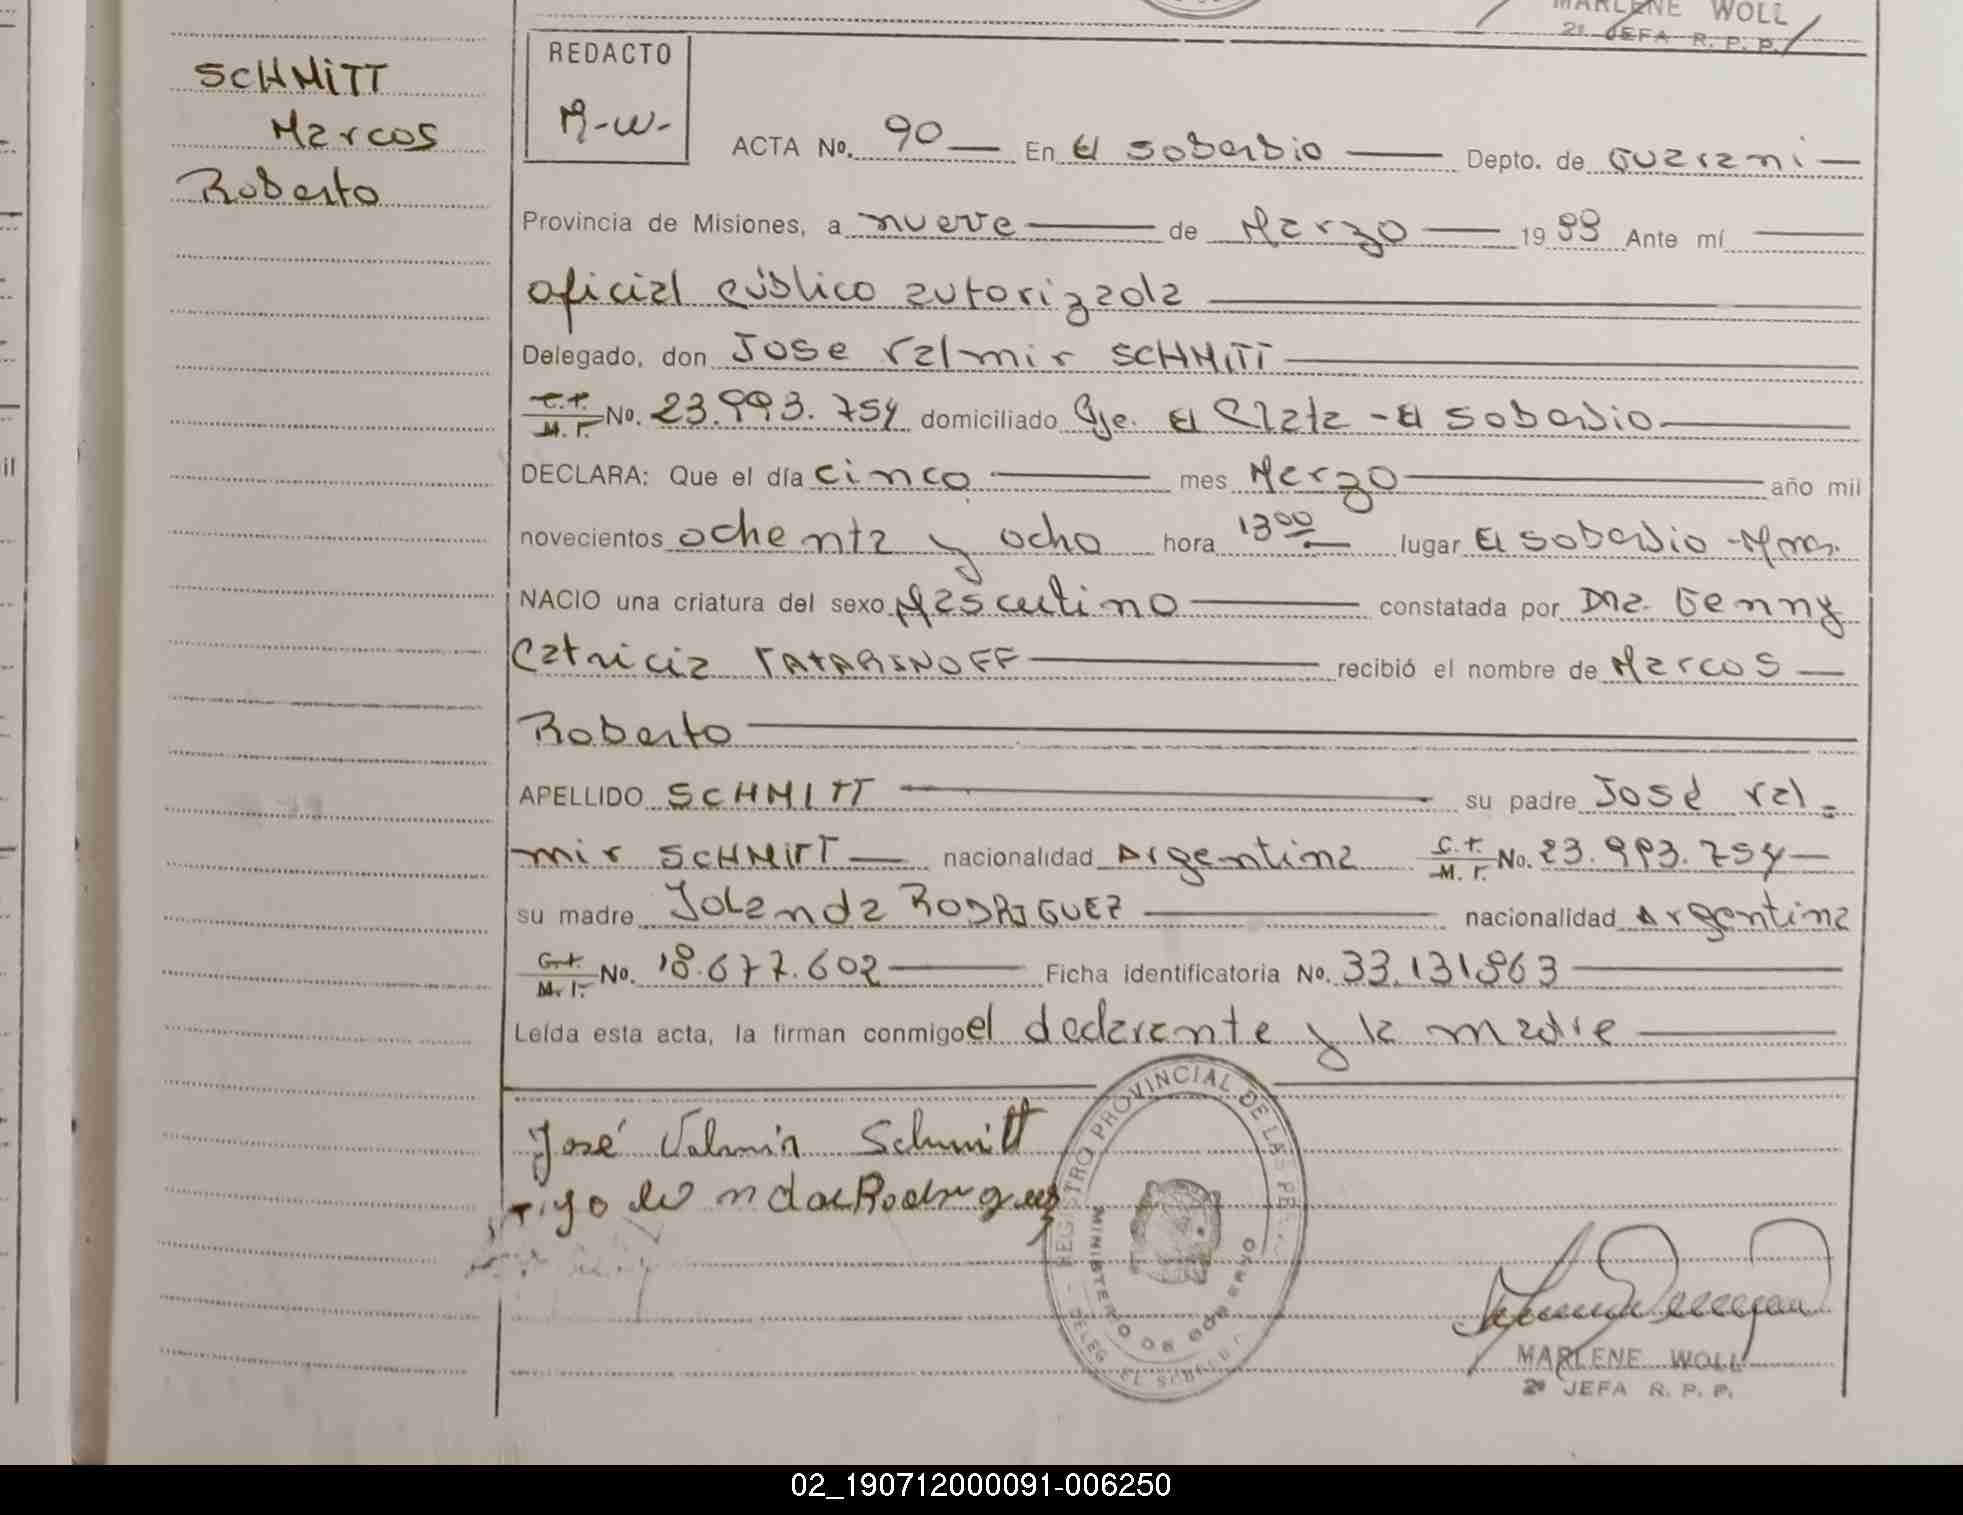 MARLENE WOLL
2ª JEFA R. P. P.
SCHMITT
Marcos
Roberto
REDACTO
M-W-
ACTA No. 90 — En El Soberbio — Depto. de Guarani —
Provincia de Misiones, a nueve — de Marzo — 19 88 Ante mí —
oficial público autorizada —
Delegado, don Jose Valmir SCHMITT —
C.I. M.I. No. 23.993.754 domiciliado Pje. El Plata - El Soberbio —
DECLARA: Que el día cinco — mes Marzo — año mil
novecientos ochenta y ocho hora 13 00 lugar El Soberbio - Mnes.
NACIO una criatura del sexo Masculino — constatada por Dra. Genny
Patricia TATARINOFF — recibió el nombre de Marcos —
Roberto —
APELLIDO SCHMITT — su padre José Val-
mir SCHMITT — nacionalidad Argentina C.I. M.I. No. 23.993.754 —
su madre Yolanda RODRIGUEZ — nacionalidad Argentina
C.I. M.I. No. 18.677.602 — Ficha identificatoria No. 33.131.863 —
Leída esta acta, la firman conmigo el declarante y la madre —
José Valmir Schmitt
REGISTRO PROVINCIAL DE LAS PE
MINISTERIO DE GOBIERNO
DELEG. EL SOBERBIO
MARLENE WOLL
2ª JEFA R. P. P.
02_190712000091-006250